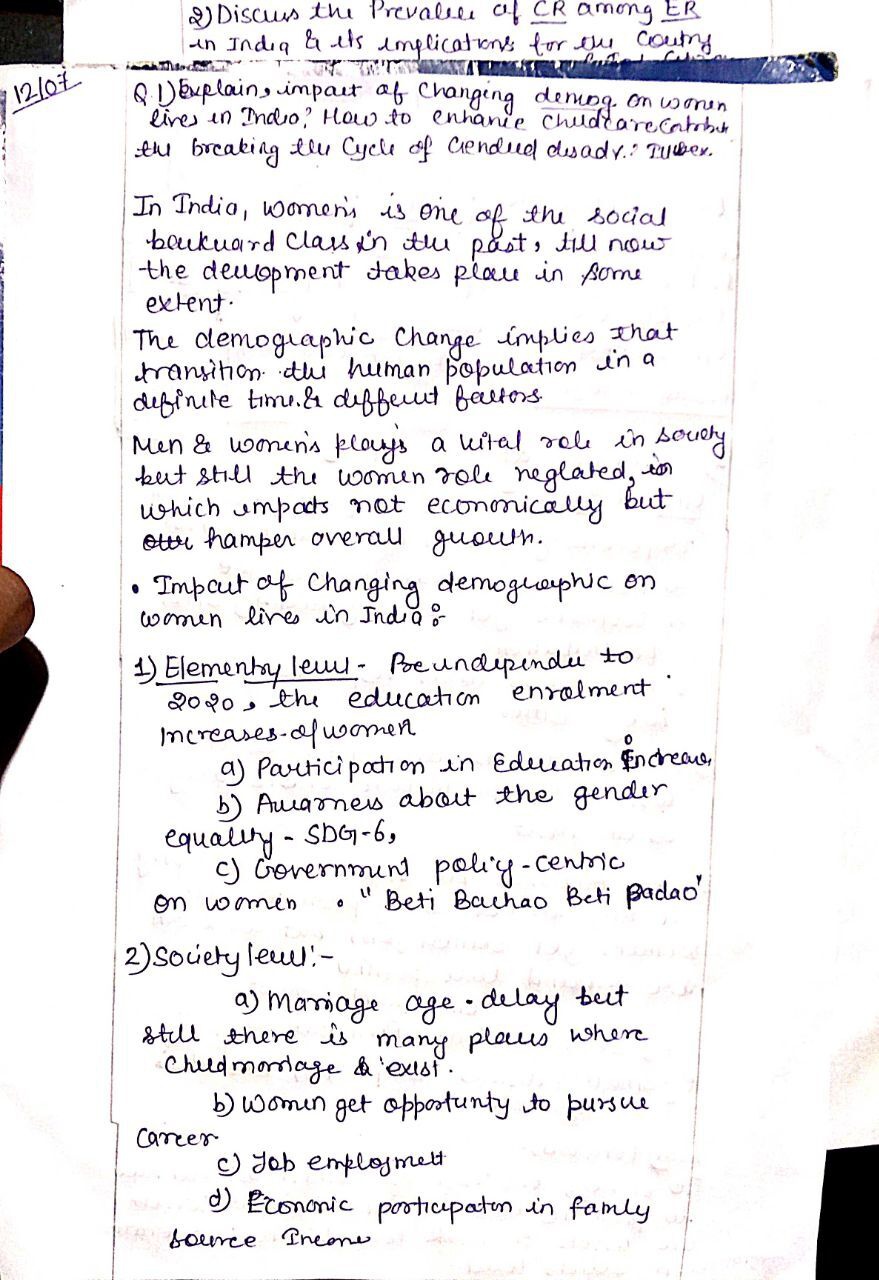 2) Discuss the Prevalece of CR among ER
in India & its implications for the Coutry
12/07
Q.1) Explain, impact of Changing demog. on women
lives in India? How to enhance Childcare Contribut
the breaking the Cycle of Gendued disadv.:
In India, women's is one of the social
backward class in the past, till now
the deuopment takes place in some
extent.
The demographic Change implies that
transition the human population in a
definite time. & different factors.
Men & women's plays a vital role in society
but still the women role neglated,
which impacts not economically but
hamper overall growth.
• Impact of Changing demographic on
women lives in India :-
1) Elementry level - Preindependee to
2020, the education enrolment
increases of women
a) Participation in Education increase,
b) Awarness about the gender
equality - SDG-6,
c) Government policy-centric
on women • "Beti Bachao Beti Padao"
2) Society level :-
a) Marriage age - delay but
still there is many places where
Child marriage & exist.
b) Women get opportunty to pursue
Career
c) Job employmett
d) Economic participaton in famly
source Income